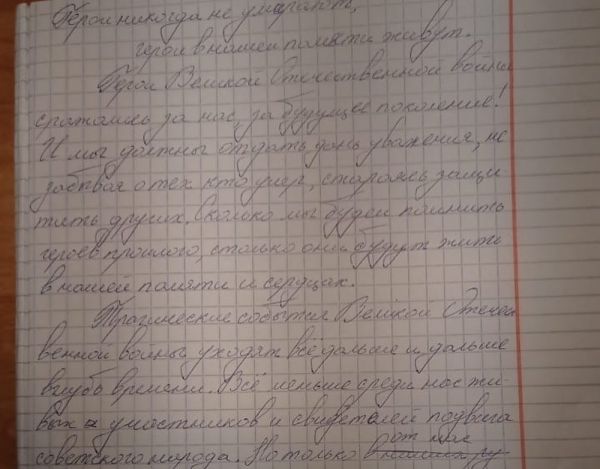 Герои никогда не умирают,
герои в нашей памяти живут.
Герои Великой Отечественной войны
сражались за нас, за будущее поколение!
И мы должны отдать дань уважения, не
забывая о тех кто умер, стараясь защи
тить других. Сколько мы будем помнить
героев прошлого, столько они будут жить
в нашей памяти и сердцах.
Трагические события Великой Отечест
венной войны уходят всё дальше и дальше
вглубь времени. Всё меньше среди нас жи-
вых участников и свидетелей подвига
от нас
советского народа. Но только